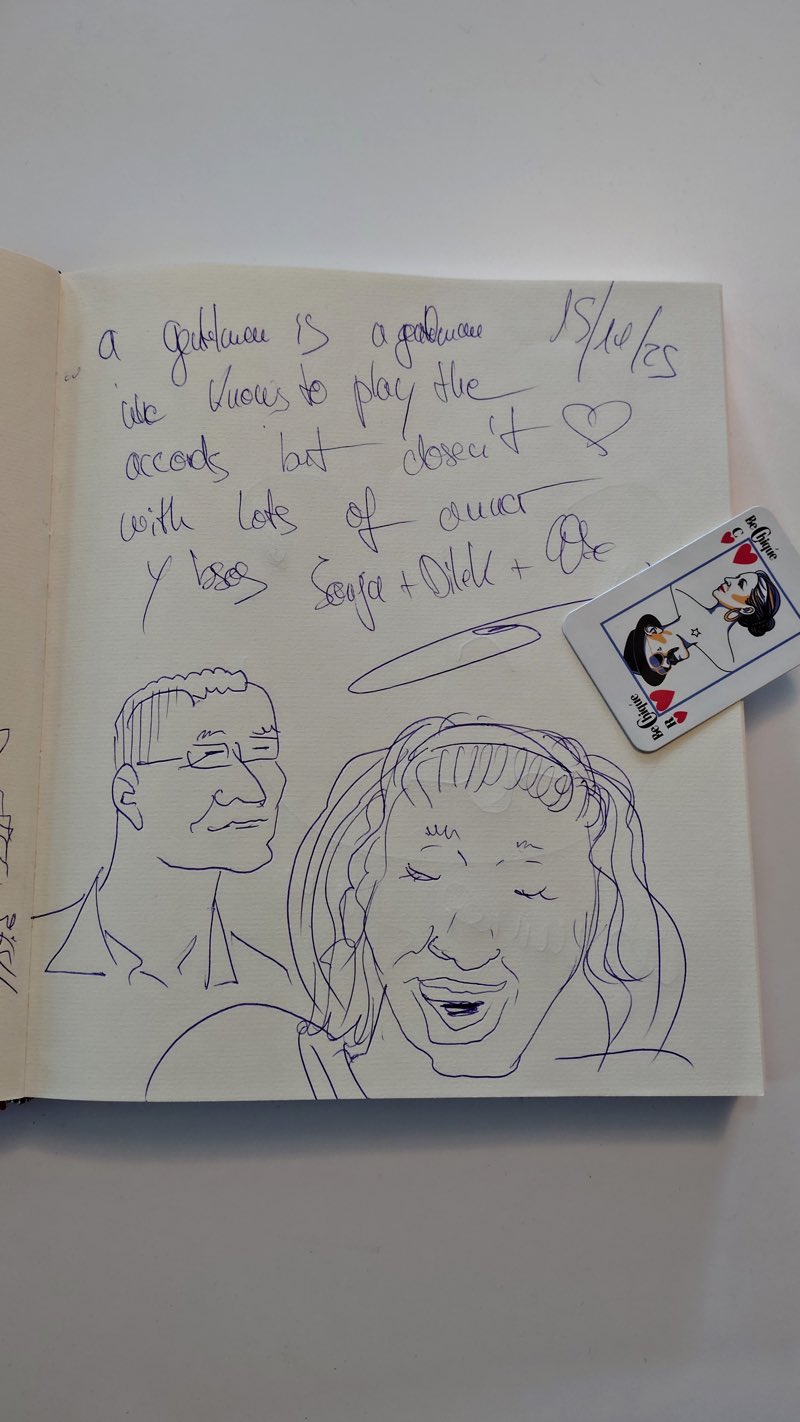 a gentleman is a gentleman
knows to play the
accords but doesn't
with lots of amor
y besos Sonja + Dilek +
Be Chique
C
Be Chique
R